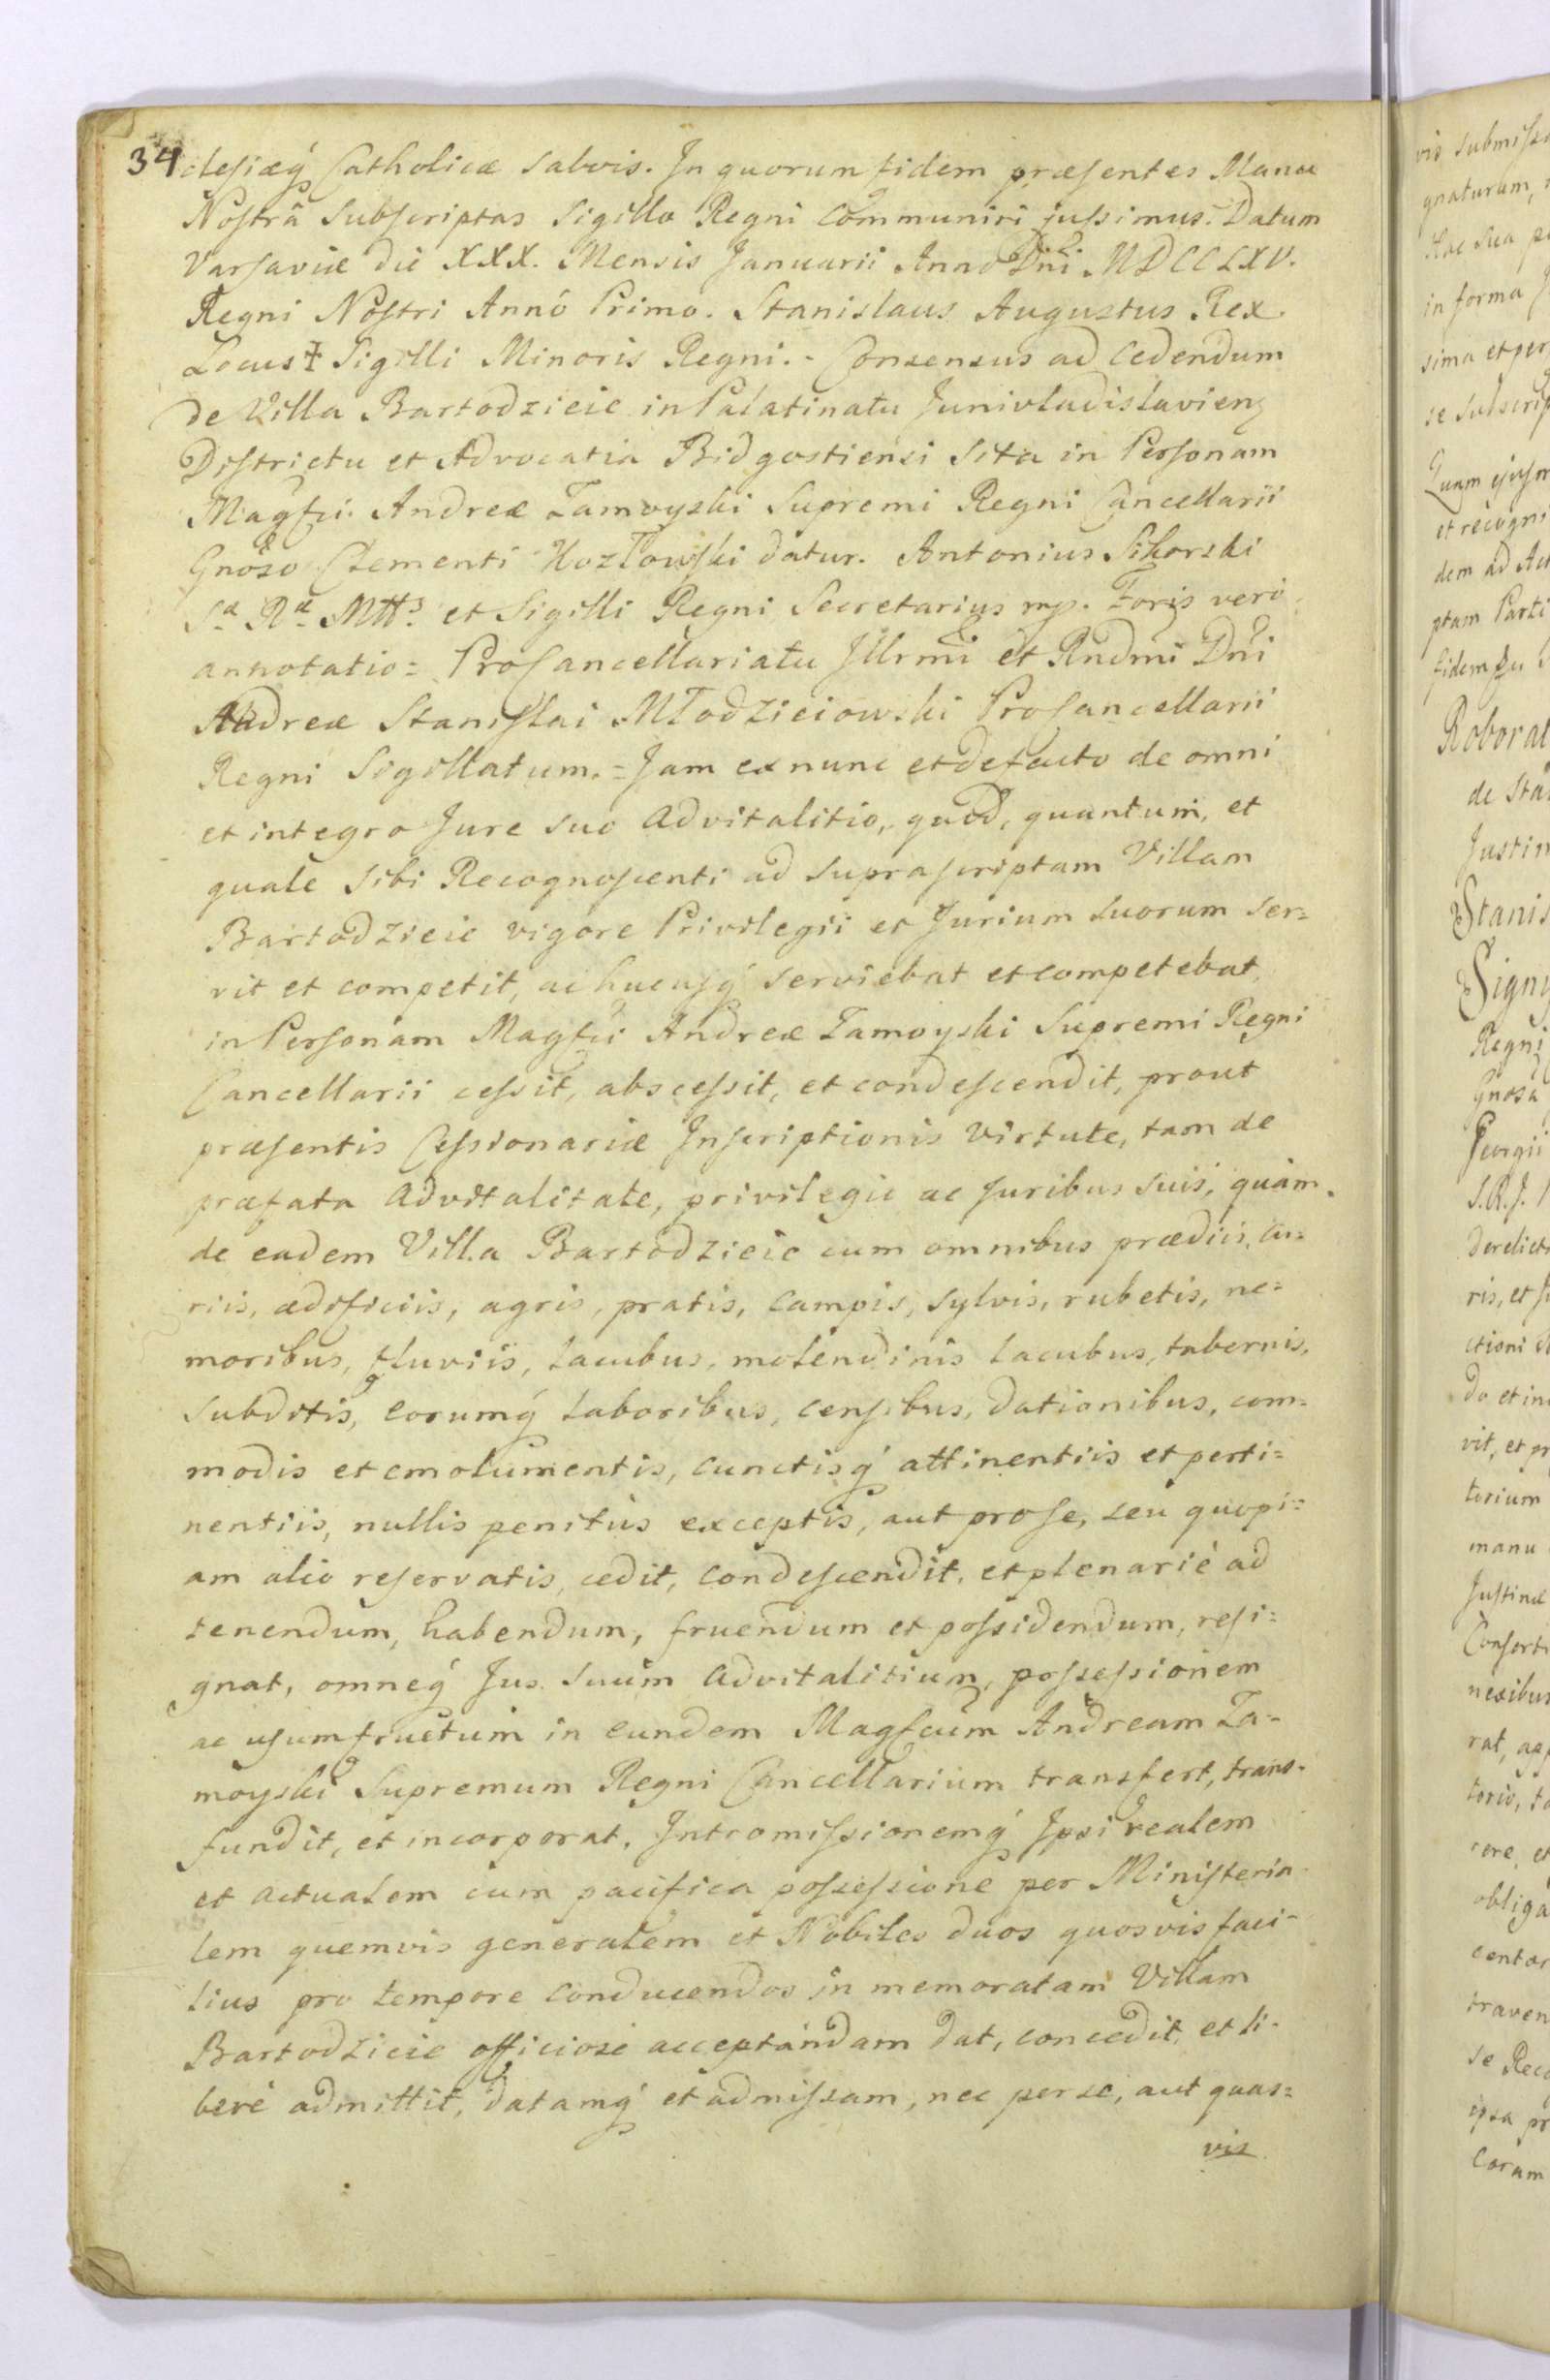 34 clesiæq́ Catholicæ salvis. In quorum fidem præsentes Manu
Nostrâ Subscriptas Sigillo Regni Communiri jussimus. Datum
Varsaviæ die XXX. Mensis Januarii Anno Dni MDCCLXV.
Regni Nostri Annô Primo. Stanislaus Augustus Rex.
Locus ‡ Sigilli Minoris Regni. - Consensus ad cedendum
de Villa Bartodzieie in Palatinatu Junivladislavien
Districtu et Advocatia Bidgostiensi sita in Personam
Magfci Andreæ Zamoyski Supremi Regni Cancellarii
Gnoso Clementi Kozłowski datur. Antonius Sikorski
Sæ Ræ Mttis et Sigilli Regni Secretarius mp. Foris vero
annotatio = ProCancellariatu Illrmi et Rndmi Dni
Andreæ Stanislai Młodzieiowski ProCancellarii
Regni Sigillatum. = Jam ex nunc et defacto de omni
et integro Jure suo advitalitio, quod, quantum, et
quale sibi Recognoscenti ad suprascriptam Villam
Bartodzieie vigore Privilegii et Jurium suorum ser=
vit et competit, ac hucusq́ serviebat et competebat,
in Personam Magfci Andreæ Zamoyski Supremi Regni
Cancellarii cessit, abscessit, et condescendit, prout
præsentis Cessionariæ Inscriptionis virtute, tam de
præfata advitalitate, privilegio ac Juribus suis, quàm
de eadem Villa Bartodzieie cum omnibus prædiis, cu=
riis, ædificiis, agris, pratis, campis, sylvis, rubetis, ne=
moribus, fluviis, lacubus, molendinis lacubus, tabernis,
subditis, eorumq́ laboribus, censibus, dationibus, com=
modis et emolumentis, cunctisq́ attinentiis et perti=
nentiis, nullis penitùs exceptis, aut pro se, seu quopi=
am alio reservatis, cedit, condescendit, et plenariè ad
tenendum, habendum, fruendum et possidendum, resi=
gnat, omneq́ Jus suum advitalitium, possessionem
ac usumfructum in eundem Magfcum Andream Za-
moyski Supremum Regni Cancellarium transfert, trans-
fundit, et incorporat, Intromissionemq́ Ipsi realem
et actualem cum pacifica possessione per Ministeria-
lem quemvis generalem et Nobiles duos quosvis faci-
lius pro tempore conducendos in memoratam Villam
Bartodzieie officiose acceptandam dat, concedit, et li-
berè admittit, datamq́ et admissam, nec per se, aut quas=
vis
vis submiss
gnaturam,
Hac sua
in forma
sima et per
se subscrip
Quam ejusm
et recogni
dem ad Act
ptam Parti
fidem
Roborat
de Sta
Justin
Stanis
Sign
Regni
Gnosa
Georgii
S.R.J.
derelict
ris, et
ctioni
do et in
vit, et pr
torium
manu
Justinæ
Consort
nexibus
rat, ap
toris,
rere, et
obliga
centar
traven
se Reco
ipsa pr
Coram